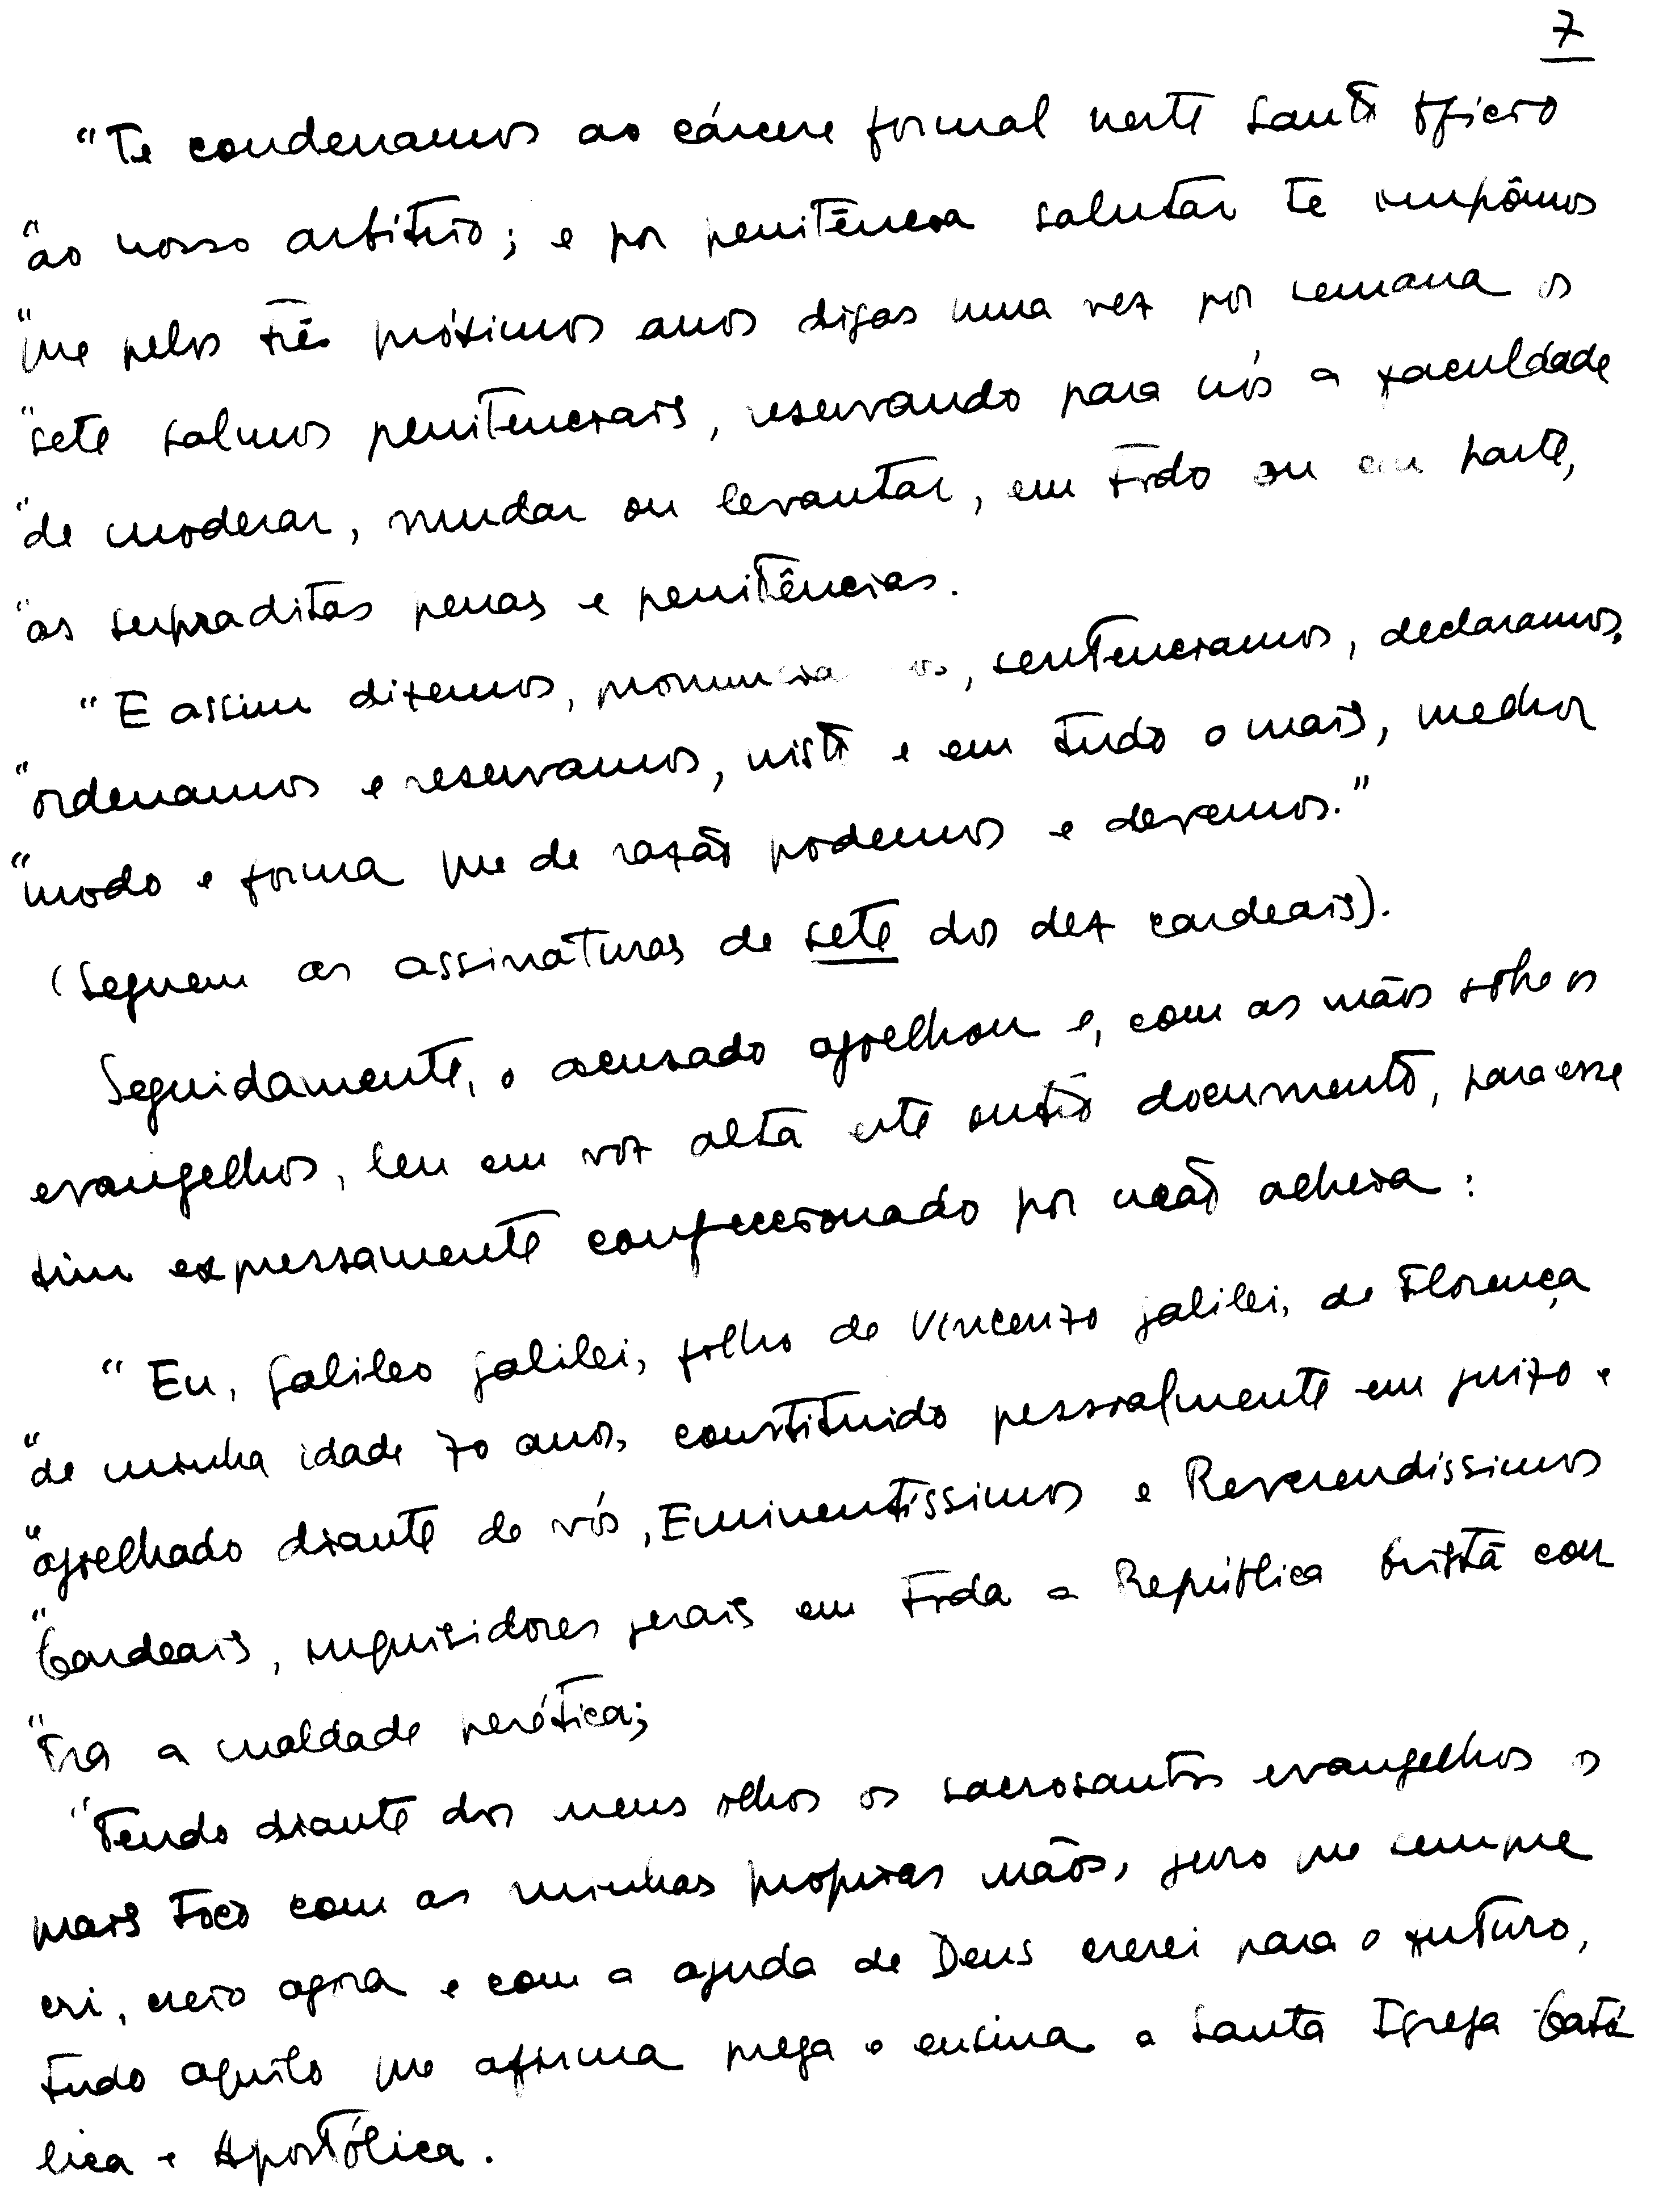 7
"Te condenamos ao cárcere formal neste Santo Ofício
"ao nosso arbítrio; e por penitência salutar te impômos
"que pelos três próximos anos digas uma vez por semana os
"sete salmos penitenciais, reservando para nós a faculdade
"de moderar, mudar ou levantar, em todo ou em parte,
"as supraditas penas e penitências.
"E assim dizemos, pronunciamos, sentenciamos, declaramos,
"ordenamos e reservamos, nisto e em tudo o mais, melhor
"modo e forma que de razão podemos e devemos."
(Seguem as assinaturas de sete dos dez cardeais).
Seguidamente, o acusado ajoelhou e, com as mãos sobre os
evangelhos, leu em voz alta este outro documento, para esse
fim expressamente confeccionado por mão alheia:
"Eu, Galileo Galilei, filho de Vincenzo Galilei, de Florença
"de minha idade 70 anos, constituido pessoalmente em juizo e
"ajoelhado diante de vós, Eminentíssimos e Reverendissimos
"Cardeais, inquisidores gerais em toda a República Cristã con
"tra a maldade herética;
"Tendo diante dos meus olhos os sacrosantos evangelhos os
quais toco com as minhas proprias mãos, juro que sempre
cri, creio agora e com a ajuda de Deus crerei para o futuro,
tudo aquilo que afirma prega e ensina a Santa Igreja Cató
lica e Apostólica.